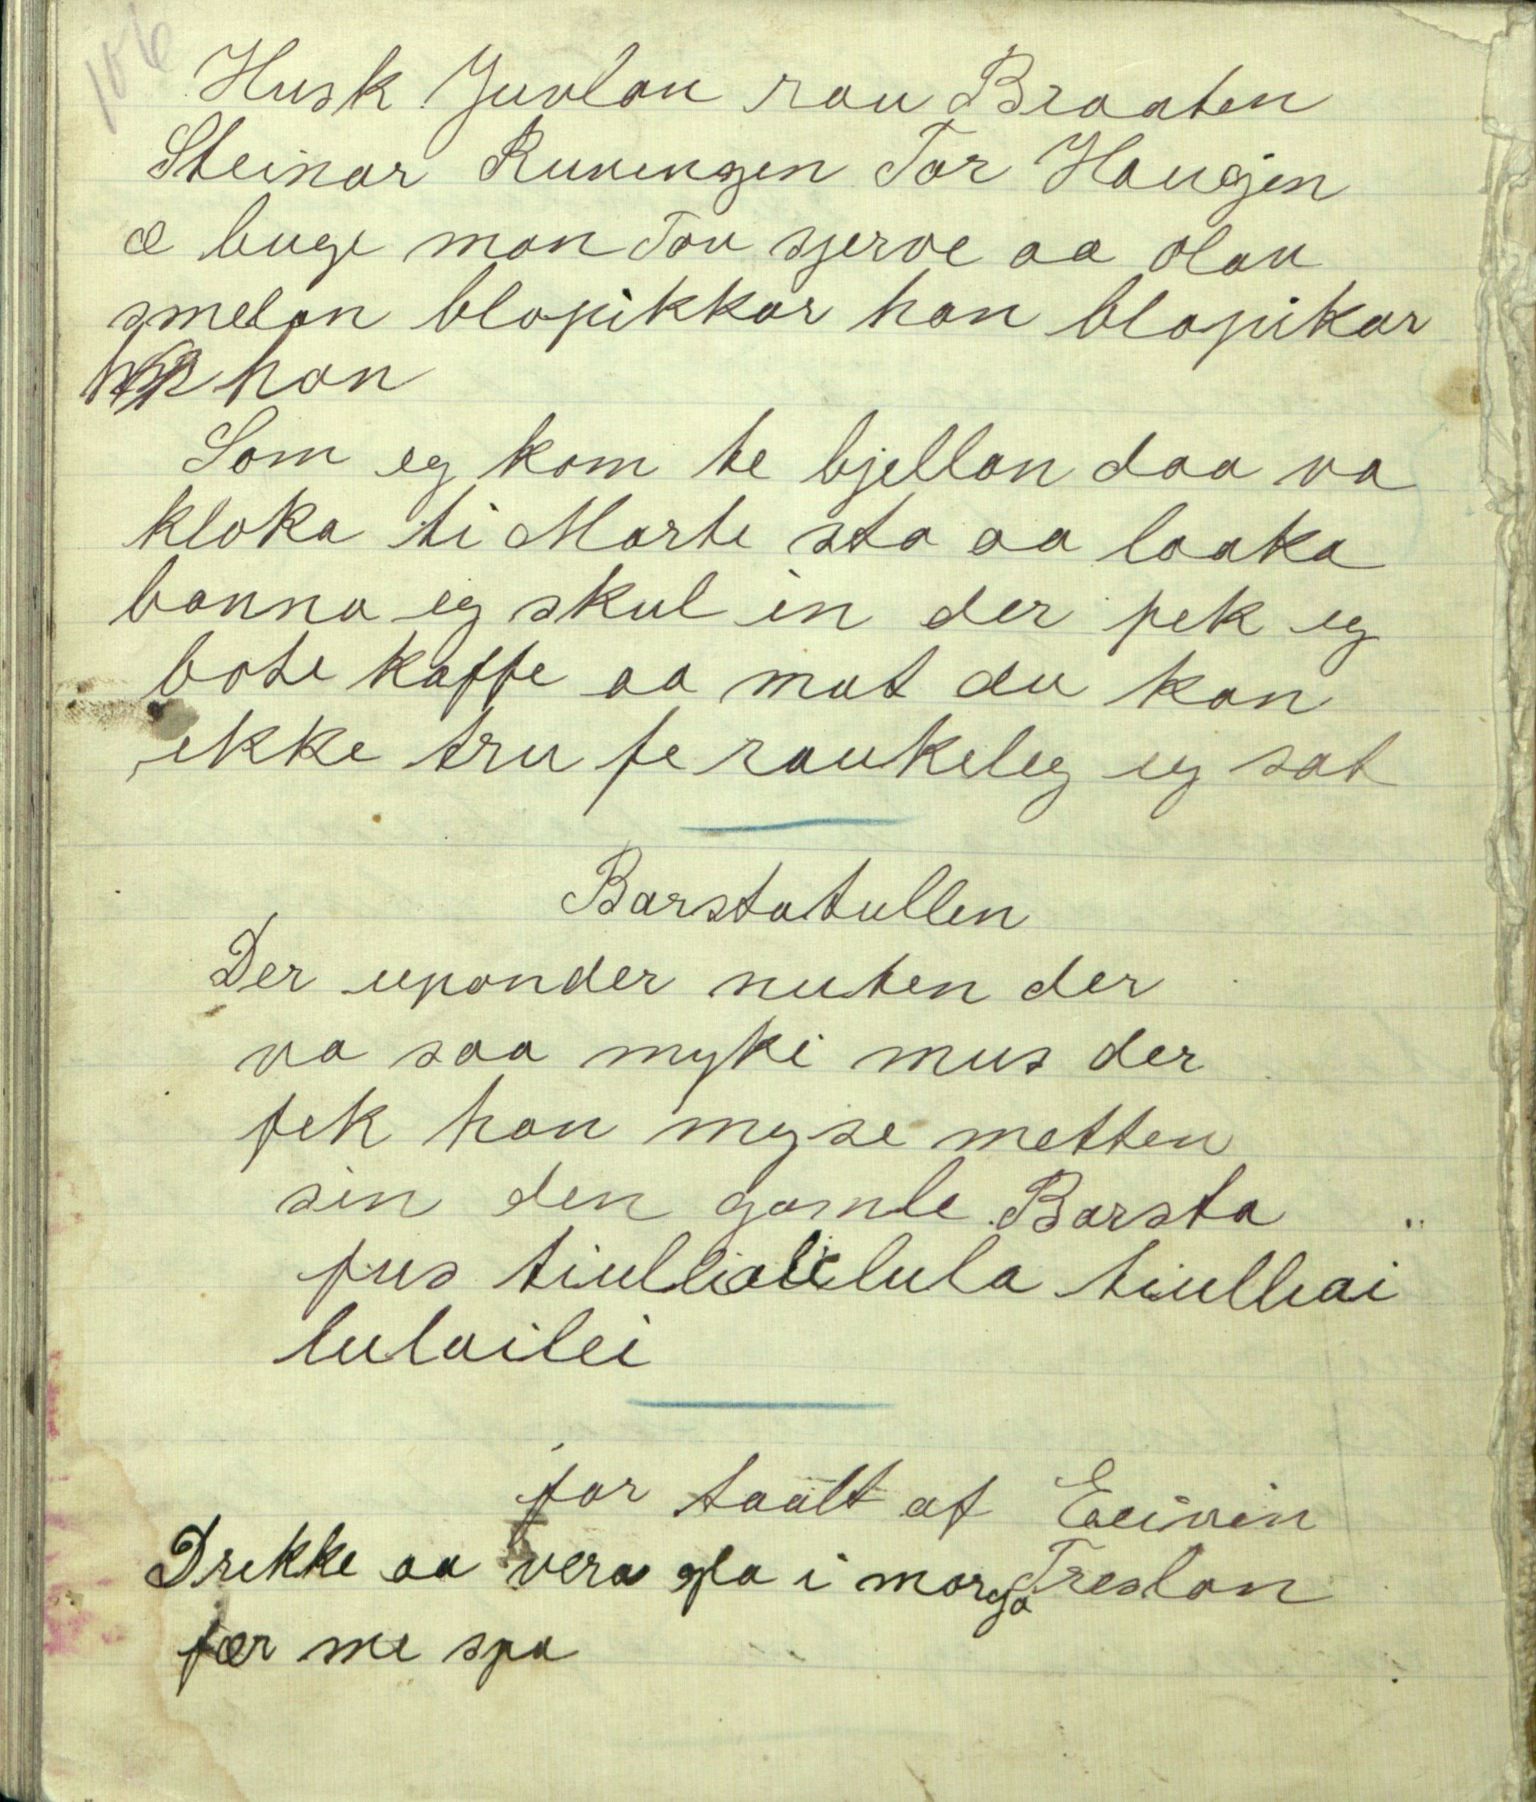 106
Husk Juvlan rau Braaten
Steinar Ruuengen Tor Haugen
æ buge man Tov sjerve aa Olav
smeden blapikkar han blapikar
han
Som eg kom te bjellan daa va
kloka ti Marte sto aa laaka
banna eg skul in der fek eg
bote kaffe aa mat du kan
ikke tru fe raukeleg eg sat
Barstatullen
Der uponder nuten der
va saa myki mus der
fek han myse metten
sin den gamle Barsta
fus tiullialilula tiulliai
lulailei
for taalt af Eeivin
Treslan
Drekke aa vera gla i morga
fær me spa